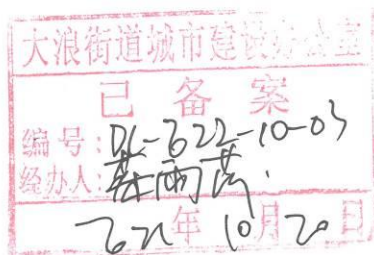 大浪街道城市建设办公室
已备案
编号:DL-2022-10-03
经办人:
2022年10月20日